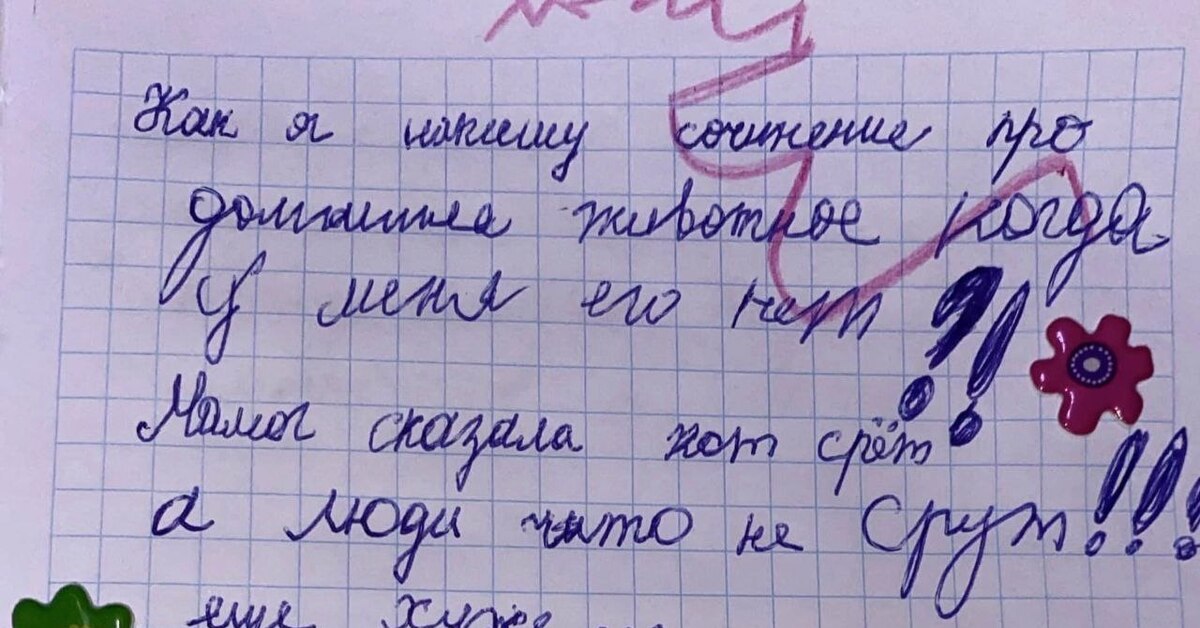 Как я напишу сочинение про
домашнее животное когда
у меня его нет?!
Мама сказала кот срёт
а люди что не срут!!!
еще хуже